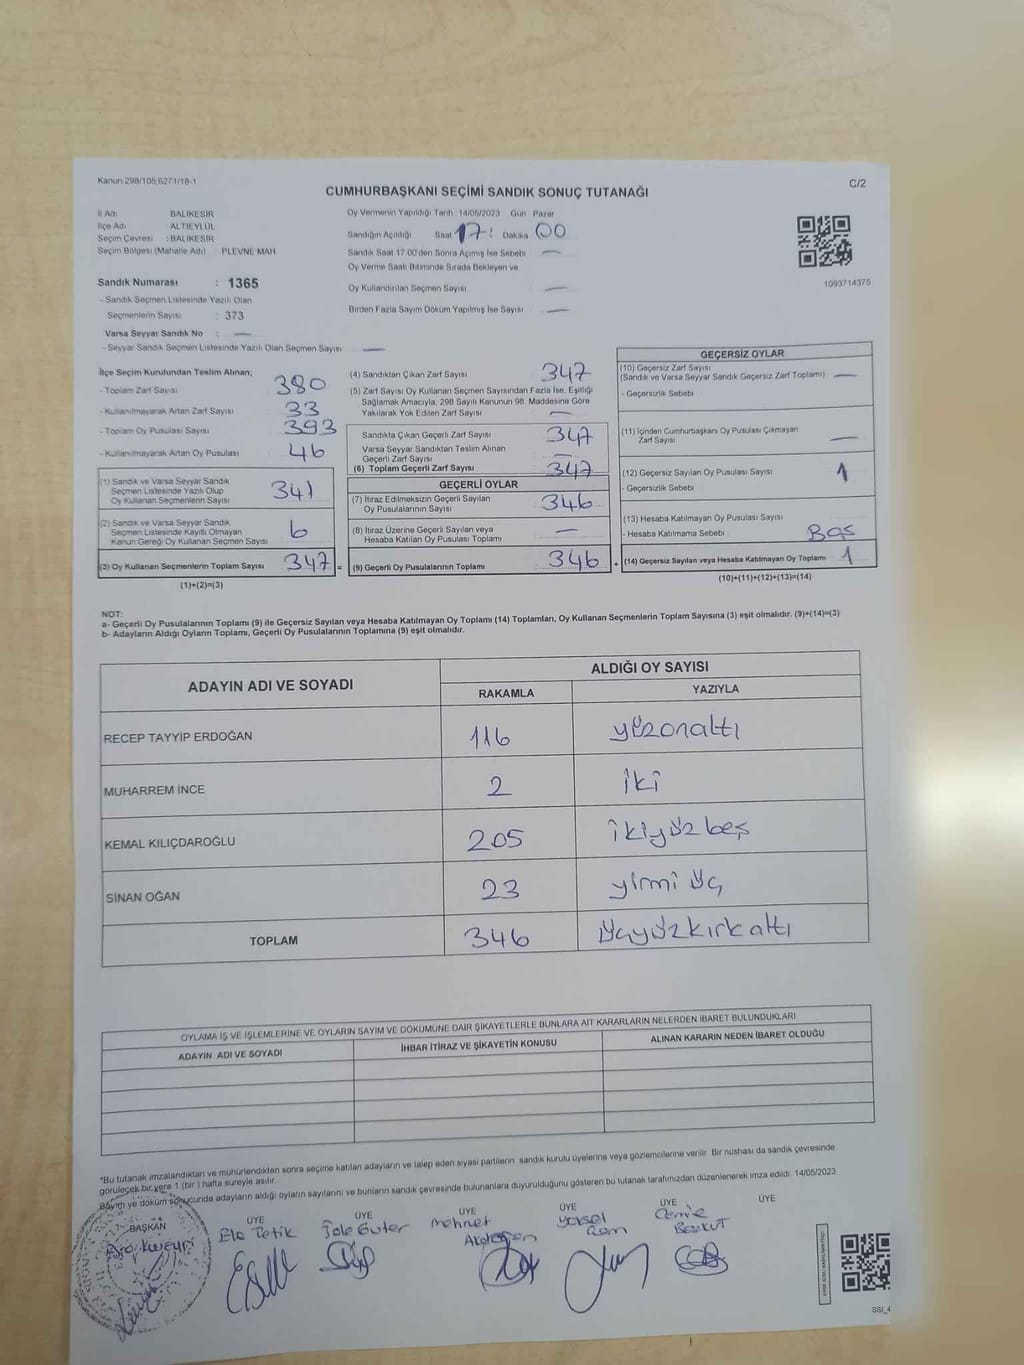 Kanun 298/105,6271/18-1
C/2
CUMHURBAŞKANI SEÇİMİ SANDIK SONUÇ TUTANAĞI
İl Adı BALIKESİR
İlçe Adı ALTIEYLÜL
Seçim Çevresi : BALIKESİR
Seçim Bölgesi (Mahalle Adı) : PLEVNE MAH
Sandık Numarası : 1365
- Sandık Seçmen Listesinde Yazılı Olan
Seçmenlerin Sayısı : 373
Varsa Seyyar Sandık No : —
- Seyyar Sandık Seçmen Listesinde Yazılı Olan Seçmen Sayısı —
Oy Vermenin Yapıldığı Tarih 14/05/2023 Gün Pazar
Sandığın Açıldığı Saat 17: Dakika 00
Sandık Saat 17.00'den Sonra Açılmış İse Sebebi —
Oy Verme Saati Bitiminde Sırada Bekleyen ve
Oy Kullandırılan Seçmen Sayısı —
Birden Fazla Sayım Döküm Yapılmış İse Sayısı —
1093714375
İlçe Seçim Kurulundan Teslim Alınan;
- Toplam Zarf Sayısı 380
- Kullanılmayarak Artan Zarf Sayısı 33
- Toplam Oy Pusulası Sayısı 393
- Kullanılmayarak Artan Oy Pusulası 46
(1) Sandık ve Varsa Seyyar Sandık
Seçmen Listesinde Yazılı Olup
Oy Kullanan Seçmenlerin Sayısı 341
(2) Sandık ve Varsa Seyyar Sandık
Seçmen Listesinde Kayıtlı Olmayan
Kanun Gereği Oy Kullanan Seçmen Sayısı 6
(3) Oy Kullanan Seçmenlerin Toplam Sayısı 347 =
(1)+(2)=(3)
(4) Sandıktan Çıkan Zarf Sayısı 347
(5) Zarf Sayısı Oy Kullanan Seçmen Sayısından Fazla İse, Eşitliği
Sağlamak Amacıyla, 298 Sayılı Kanunun 98. Maddesine Göre
Yakılarak Yok Edilen Zarf Sayısı —
Sandıkta Çıkan Geçerli Zarf Sayısı 347
Varsa Seyyar Sandıktan Teslim Alınan
Geçerli Zarf Sayısı —
(6) Toplam Geçerli Zarf Sayısı 347
GEÇERLİ OYLAR
(7) İtiraz Edilmeksizin Geçerli Sayılan
Oy Pusulalarının Sayısı 346
(8) İtiraz Üzerine Geçerli Sayılan veya
Hesaba Katılan Oy Pusulası Toplamı —
(9) Geçerli Oy Pusulalarının Toplamı 346 +
GEÇERSİZ OYLAR
(10) Geçersiz Zarf Sayısı
(Sandık ve Varsa Seyyar Sandık Geçersiz Zarf Toplamı) —
- Geçersizlik Sebebi
(11) İçinden Cumhurbaşkanı Oy Pusulası Çıkmayan
Zarf Sayısı —
(12) Geçersiz Sayılan Oy Pusulası Sayısı 1
- Geçersizlik Sebebi
(13) Hesaba Katılmayan Oy Pusulası Sayısı
- Hesaba Katılmama Sebebi Boş
(14) Geçersiz Sayılan veya Hesaba Katılmayan Oy Toplamı 1
(10)+(11)+(12)+(13)=(14)
NOT:
a- Geçerli Oy Pusulalarının Toplamı (9) ile Geçersiz Sayılan veya Hesaba Katılmayan Oy Toplamı (14) Toplamları, Oy Kullanan Seçmenlerin Toplam Sayısına (3) eşit olmalıdır. (9)+(14)=(3)
b- Adayların Aldığı Oyların Toplamı, Geçerli Oy Pusulalarının Toplamına (9) eşit olmalıdır.
ADAYIN ADI VE SOYADI
ALDIĞI OY SAYISI
RAKAMLA YAZIYLA
RECEP TAYYİP ERDOĞAN 116 yüzonaltı
MUHARREM İNCE 2 iki
KEMAL KILIÇDAROĞLU 205 ikiyüzbeş
SİNAN OĞAN 23 yirmi üç
TOPLAM 346 üçyüzkırkaltı
OYLAMA İŞ VE İŞLEMLERİNE VE OYLARIN SAYIM VE DÖKÜMÜNE DAİR ŞİKAYETLERLE BUNLARA AİT KARARLARIN NELERDEN İBARET BULUNDUKLARI
ADAYIN ADI VE SOYADI İHBAR İTİRAZ VE ŞİKAYETİN KONUSU ALINAN KARARIN NEDEN İBARET OLDUĞU
*Bu tutanak imzalandıktan ve mühürlendikten sonra seçime katılan adayların ve talep eden siyasi partilerin sandık kurulu üyelerine veya gözlemcilerine verilir. Bir nüshası da sandık çevresinde
görülecek bir yere 1 (bir) hafta süreyle asılır.
Sayım ve döküm sonucunda adayların aldığı oyların sayılarını ve bunların sandık çevresinde bulunanlara duyurulduğunu gösteren bu tutanak tarafımızdan düzenlenerek imza edildi. 14/05/2023
BAŞKAN ÜYE ÜYE ÜYE ÜYE ÜYE ÜYE
Jale Güler Mehmet
SSI_4